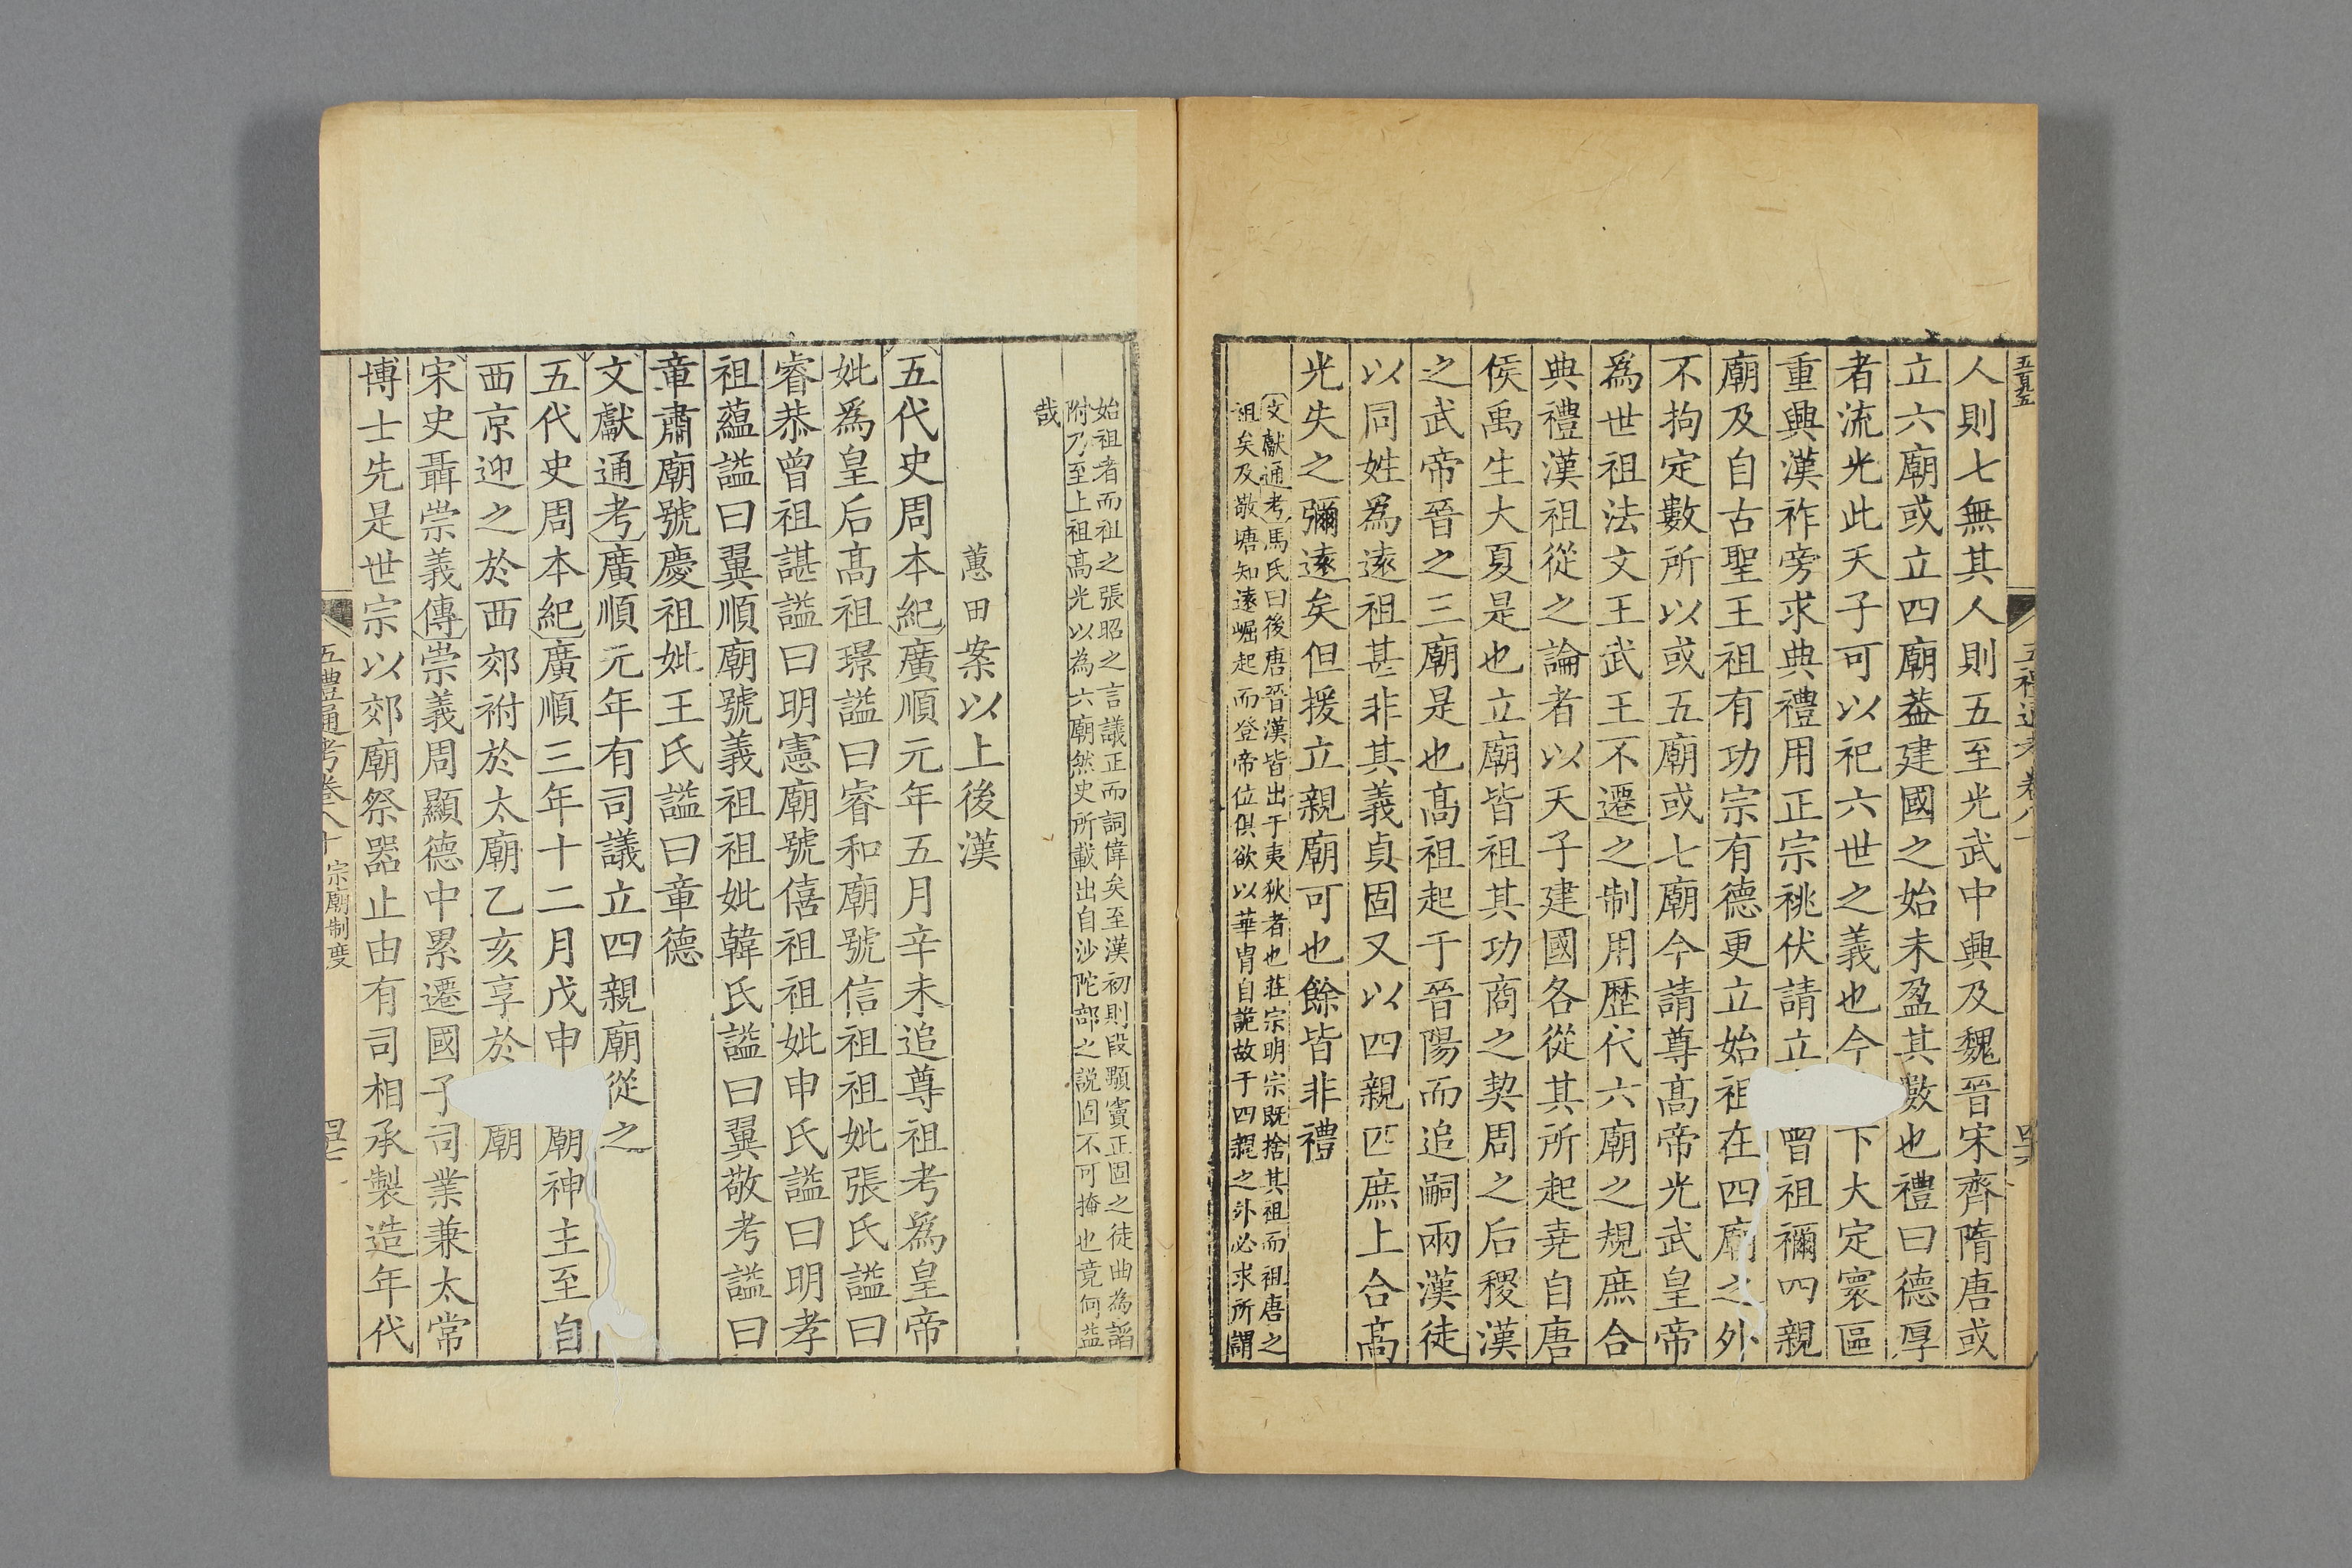 人則七無其人則五至光武中興及魏晉宋齊隋唐或
立六廟或立四廟葢建國之始未盈其數也禮曰德厚
者流光此天子可以祀六世之義也今下大定寰區
重興漢祚旁求典禮用正宗祧伏請立曾祖禰四親
廟及自古聖王祖有功宗有德更立始祖在四廟之外
不拘定數所以或五廟或七廟今請尊高帝光武皇帝
爲世祖法文王武王不遷之制用歷代六廟之規庶合
典禮漢祖從之論者以天子建國各從其所起堯自唐
侯禹生大夏是也立廟皆祖其功商之契周之后稷漢
之武帝晉之三廟是也高祖起于晉陽而追嗣兩漢徒
以同姓爲遠祖甚非其義貞固又以四親匹庶上合高
光失之彌遠矣但援立親廟可也餘皆非禮
文獻通考馬氏曰後唐晉漢皆出于夷狄者也莊宗明宗既捨其祖而祖唐之
祖矣及敬塘知遠崛起而登帝位俱欲以華冑自詭故于四親之外必求所謂
始祖者而祖之張昭之言議正而詞偉矣至漢初則段顒竇正固之徒曲為諂
附乃至上祖高光以為六廟然史所載出自沙陀部之說固不可掩也竟何益
哉
蕙田案以上後漢
五代史周本紀廣順元年五月辛未追尊祖考爲皇帝
妣爲皇后高祖璟謚曰睿和廟號信祖祖妣張氏謚曰
睿恭曾祖諶謚曰明憲廟號僖祖祖妣申氏謚曰明孝
祖蘊謚曰翼順廟號義祖祖妣韓氏謚曰翼敬考謚曰
章肅廟號慶祖妣王氏謚曰章德
文獻通考廣順元年有司議立四親廟從之
五代史周本紀廣順三年十二月戊申廟神主至自
西京迎之於西郊祔於太廟乙亥享於廟
宋史聶崇義傳崇義周顯德中累遷國子司業兼太常
博士先是世宗以郊廟祭器止由有司相承製造年代
五禮通考卷八十 宗廟制度